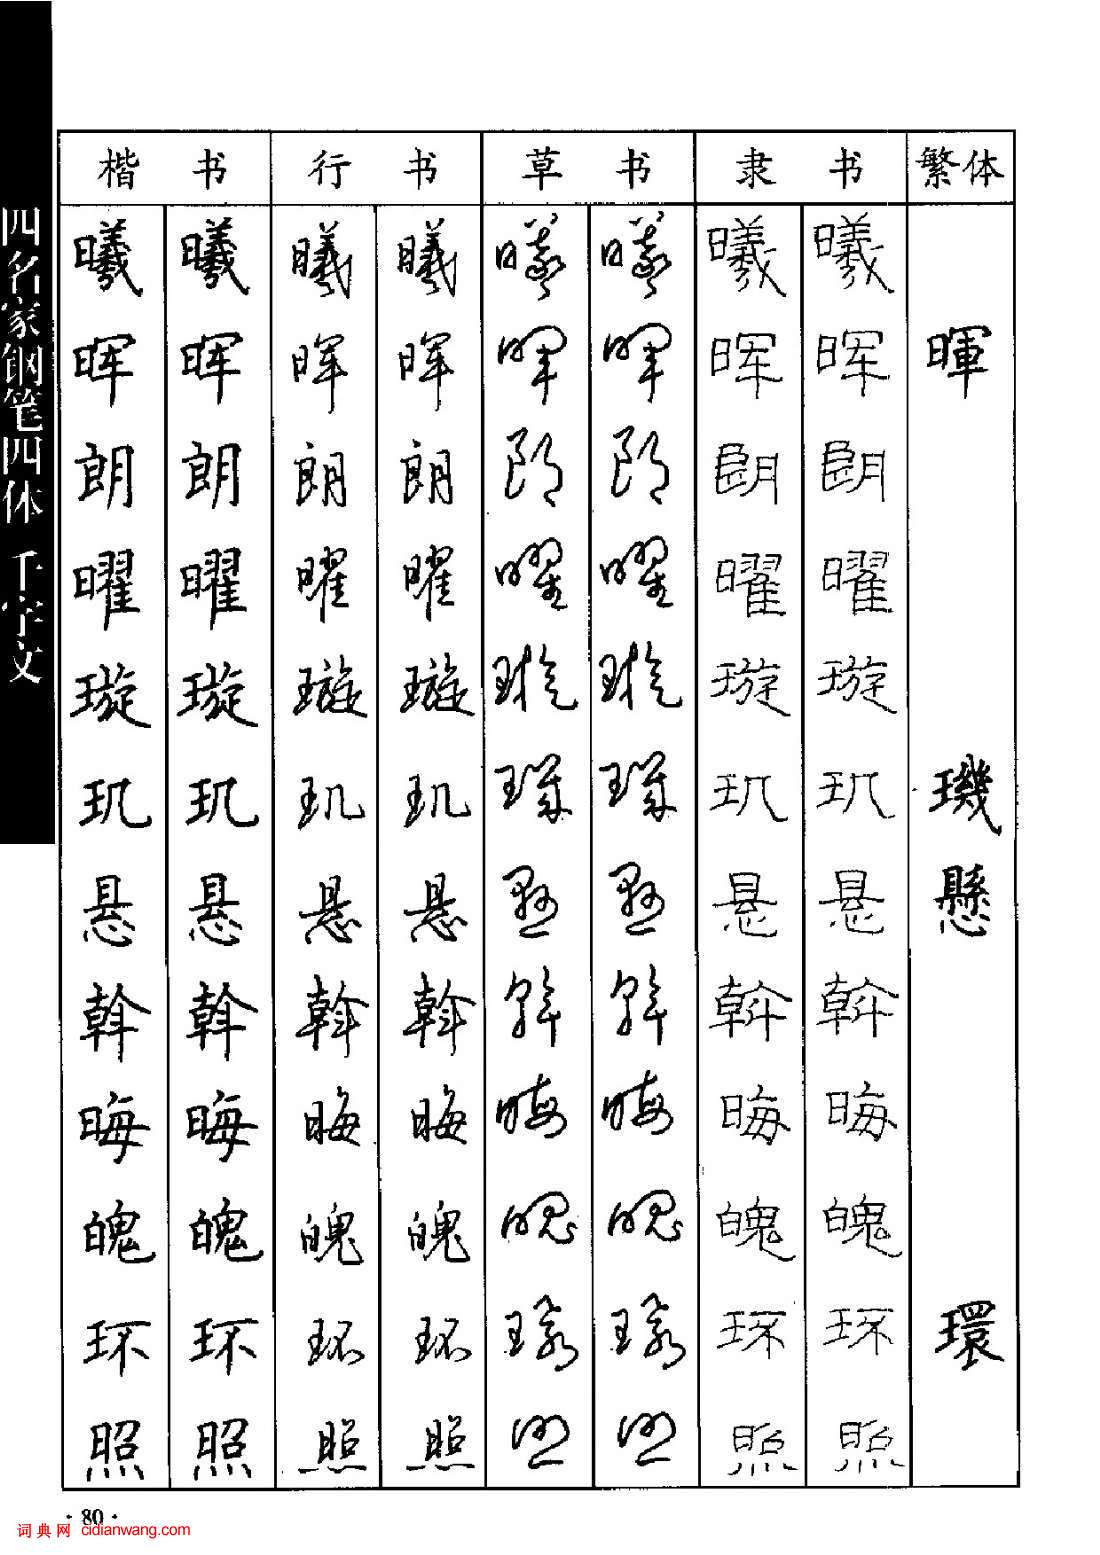 四名家钢笔四体 千字文
楷 书 行 书 草 书 隶 书 繁体
曦 曦 曦 曦 曦 曦 曦 曦
晖 晖 晖 晖 晖 晖 晖 晖 暉
朗 朗 朗 朗 朗 朗 朗 朗
曜 曜 曜 曜 曜 曜 曜 曜
璇 璇 璇 璇 璇 璇 璇 璇
玑 玑 玑 玑 玑 玑 玑 玑 璣
悬 悬 悬 悬 悬 悬 悬 悬 懸
斡 斡 斡 斡 斡 斡 斡 斡
晦 晦 晦 晦 晦 晦 晦 晦
魄 魄 魄 魄 魄 魄 魄 魄
环 环 环 环 环 环 环 环 環
照 照 照 照 照 照 照 照
·80·
词典网 cidianwang.com